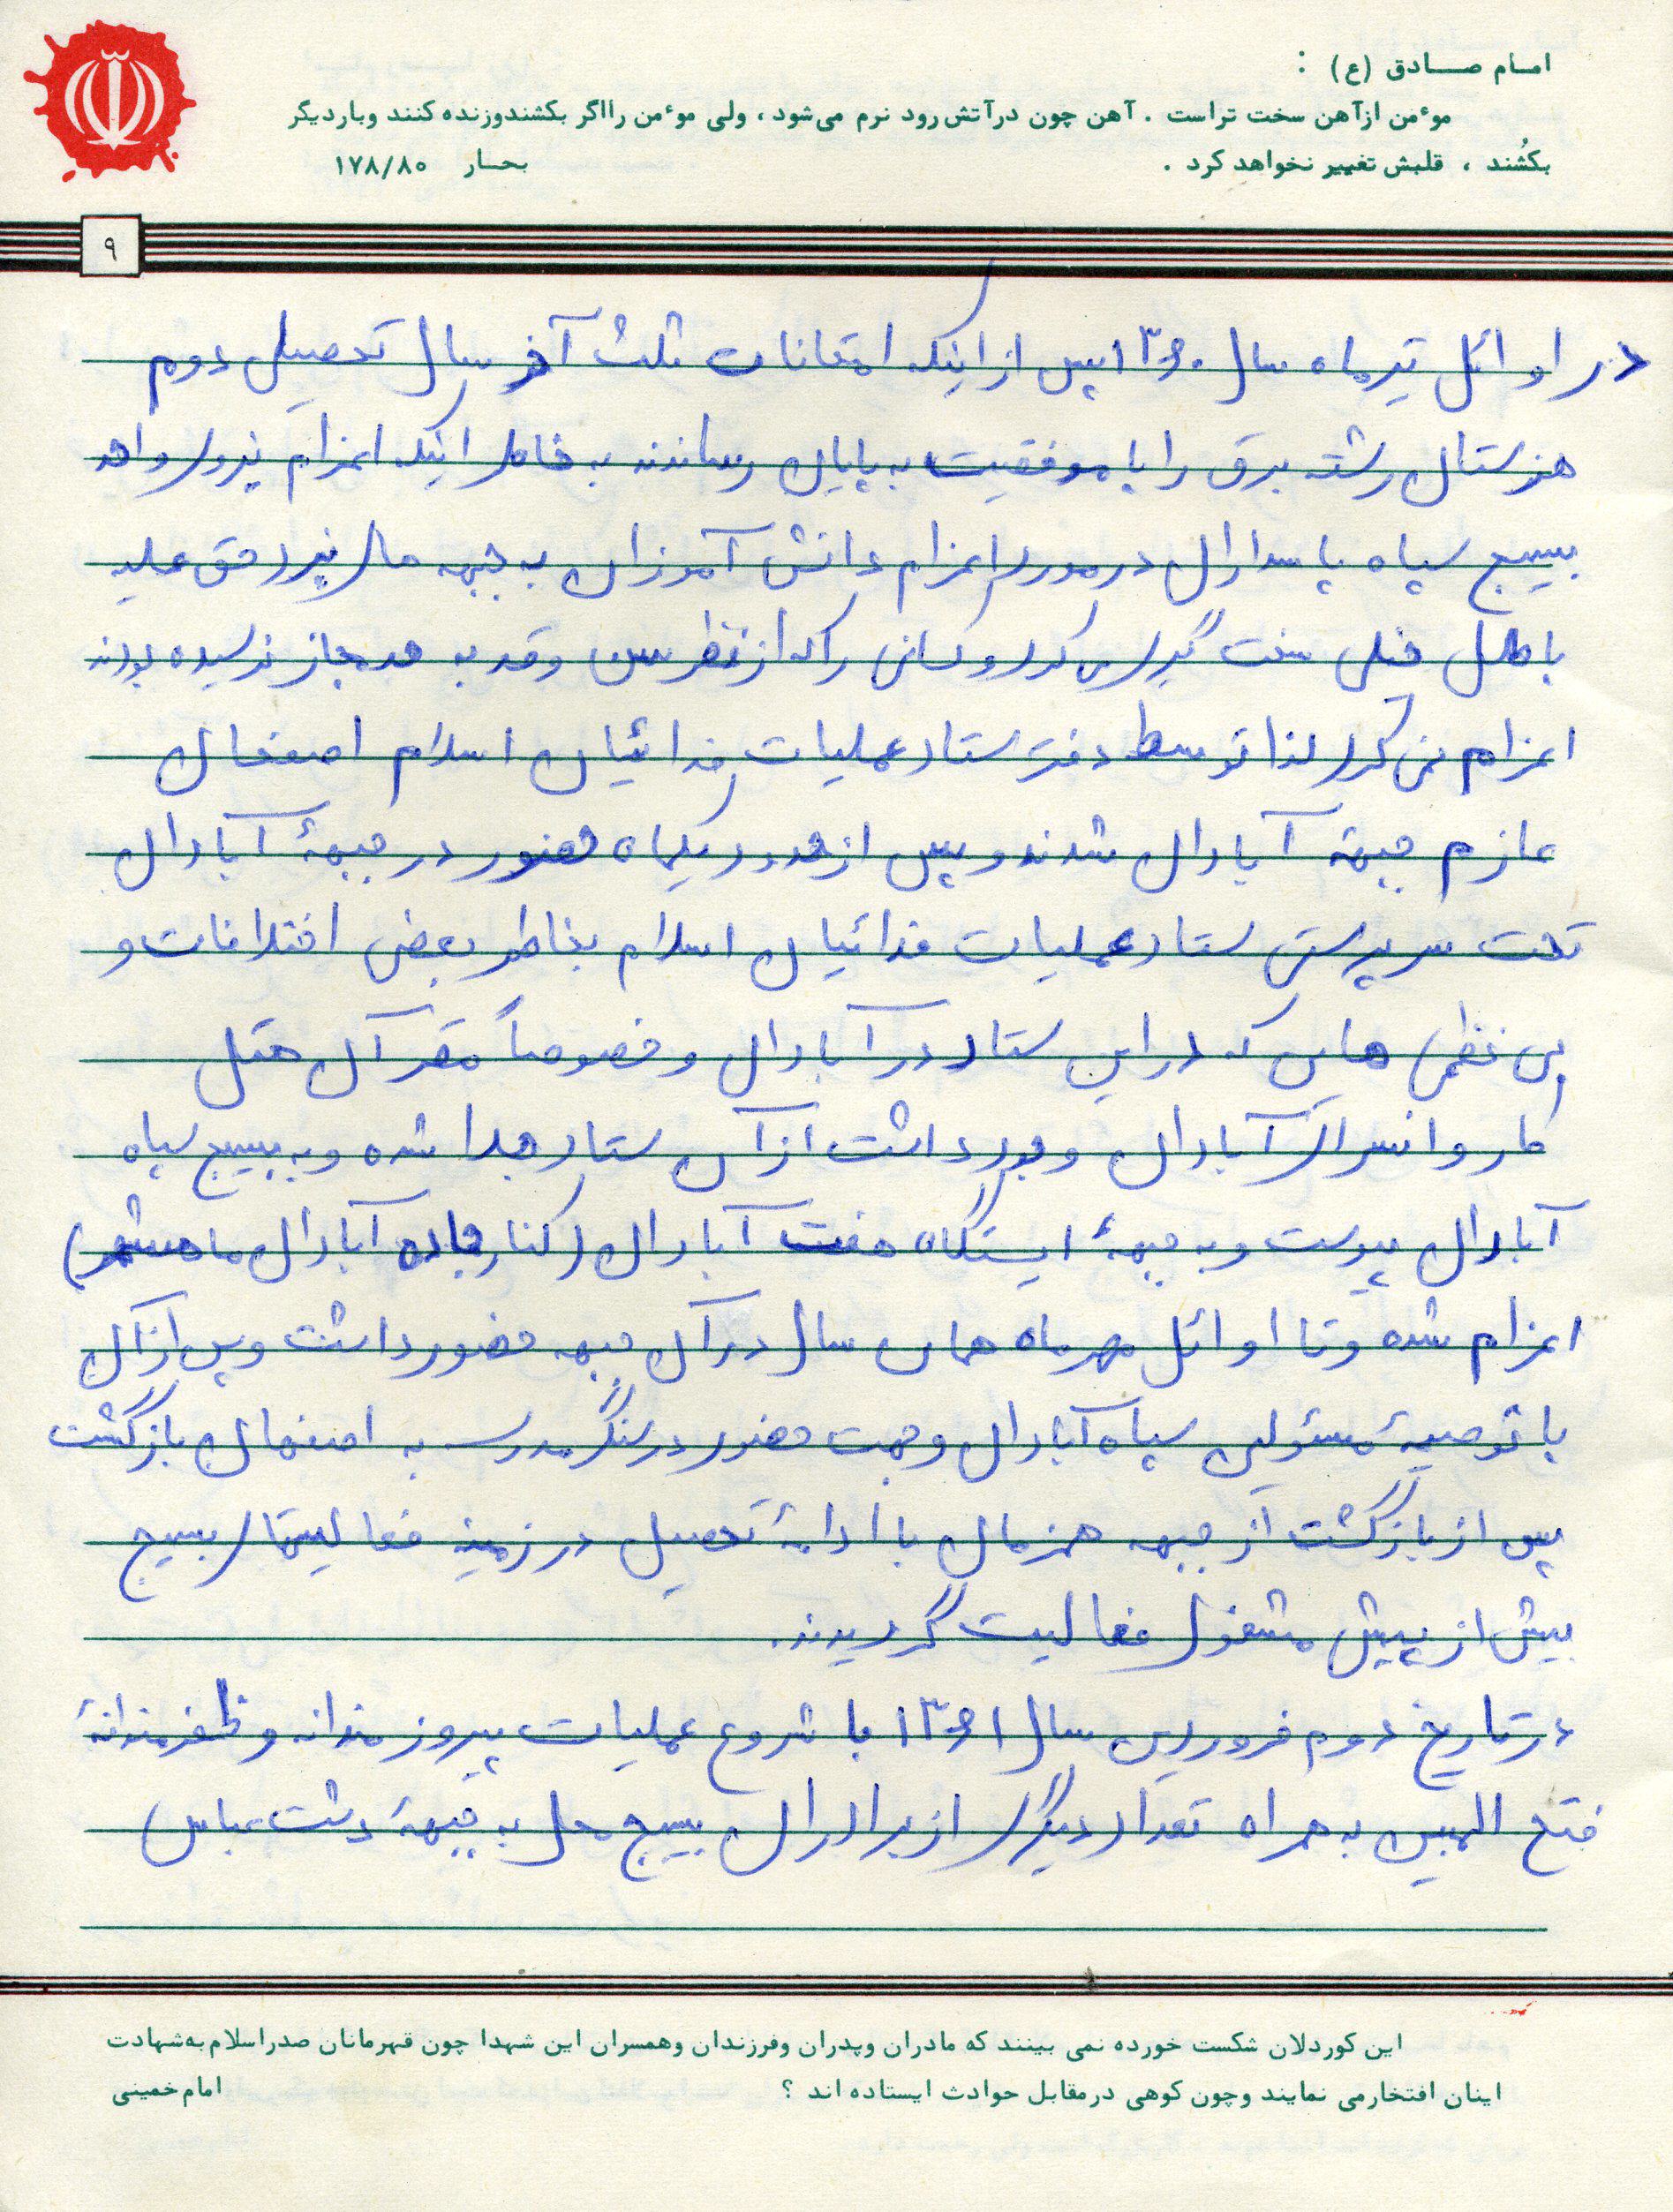 امام صادق (ع) :
موءمن ازآهن سخت تراست . آهن چون درآتش رود نرم می‌شود ، ولی موءمن رااگر بکشندوزنده کنند وباردیگر
بکُشند ، قلبش تغییر نخواهد کرد . بحار ۱۷۸/۸۰
۹
در اوائل تیرماه سال ۱۳۶۰ پس از اینکه امتحانات ثلث آخر سال تحصیلی دوم
هنرستان رشته برق را با موفقیت به پایان رساندند به خاطر اینکه اعزام نیروی واحد
بسیج سپاه پاسداران در مورد اعزام دانش آموزان به جبهه های نبرد حق علیه
باطل خیلی سخت گیری می کرد و کسانی را که از نظر سن و قد به حد مجاز نرسیده بودند
اعزام نمی کرد لذا توسط دفتر ستاد عملیات فدائیان اسلام اصفهان
عازم جبهه آبادان شدند و پس از حدود یکماه حضور در جبههٔ آبادان
تحت سرپرستی ستاد عملیات فدائیان اسلام بخاطر بعضی اختلافات و
بی نظمی هایی که در این ستاد در آبادان و خصوصاً مقر آن هتل
کاروانسرای آبادان وجود داشت از آن ستاد جدا شده و به بسیج سپاه
آبادان پیوست و به جبههٔ ایستگاه هفت آبادان (کنار جاده آبادان ماهشهر)
اعزام شده و تا اوائل مهرماه همان سال در آن جبهه حضور داشت و پس از آن
با توصیهٔ مسئولین سپاه آبادان و جهت حضور در سنگر مدرسه به اصفهان بازگشت
پس از بازگشت از جبهه همزمان با ادامهٔ تحصیل در زمینه فعالیتهای بسیج
بیش از پیش مشغول فعالیت گردیدند.
در تاریخ دوم فروردین سال ۱۳۶۱ با شروع عملیات پیروزمندانه و ظفرمندانهٔ
فتح المبین به همراه تعداد دیگری از برادران بسیج محل به جبههٔ دشت عباس
این کوردلان شکست خورده نمی بینند که مادران وپدران وفرزندان وهمسران این شهدا چون قهرمانان صدراسلام به‌شهادت
اینان افتخارمی نمایند وچون کوهی درمقابل حوادث ایستاده اند ؟ امام خمینی